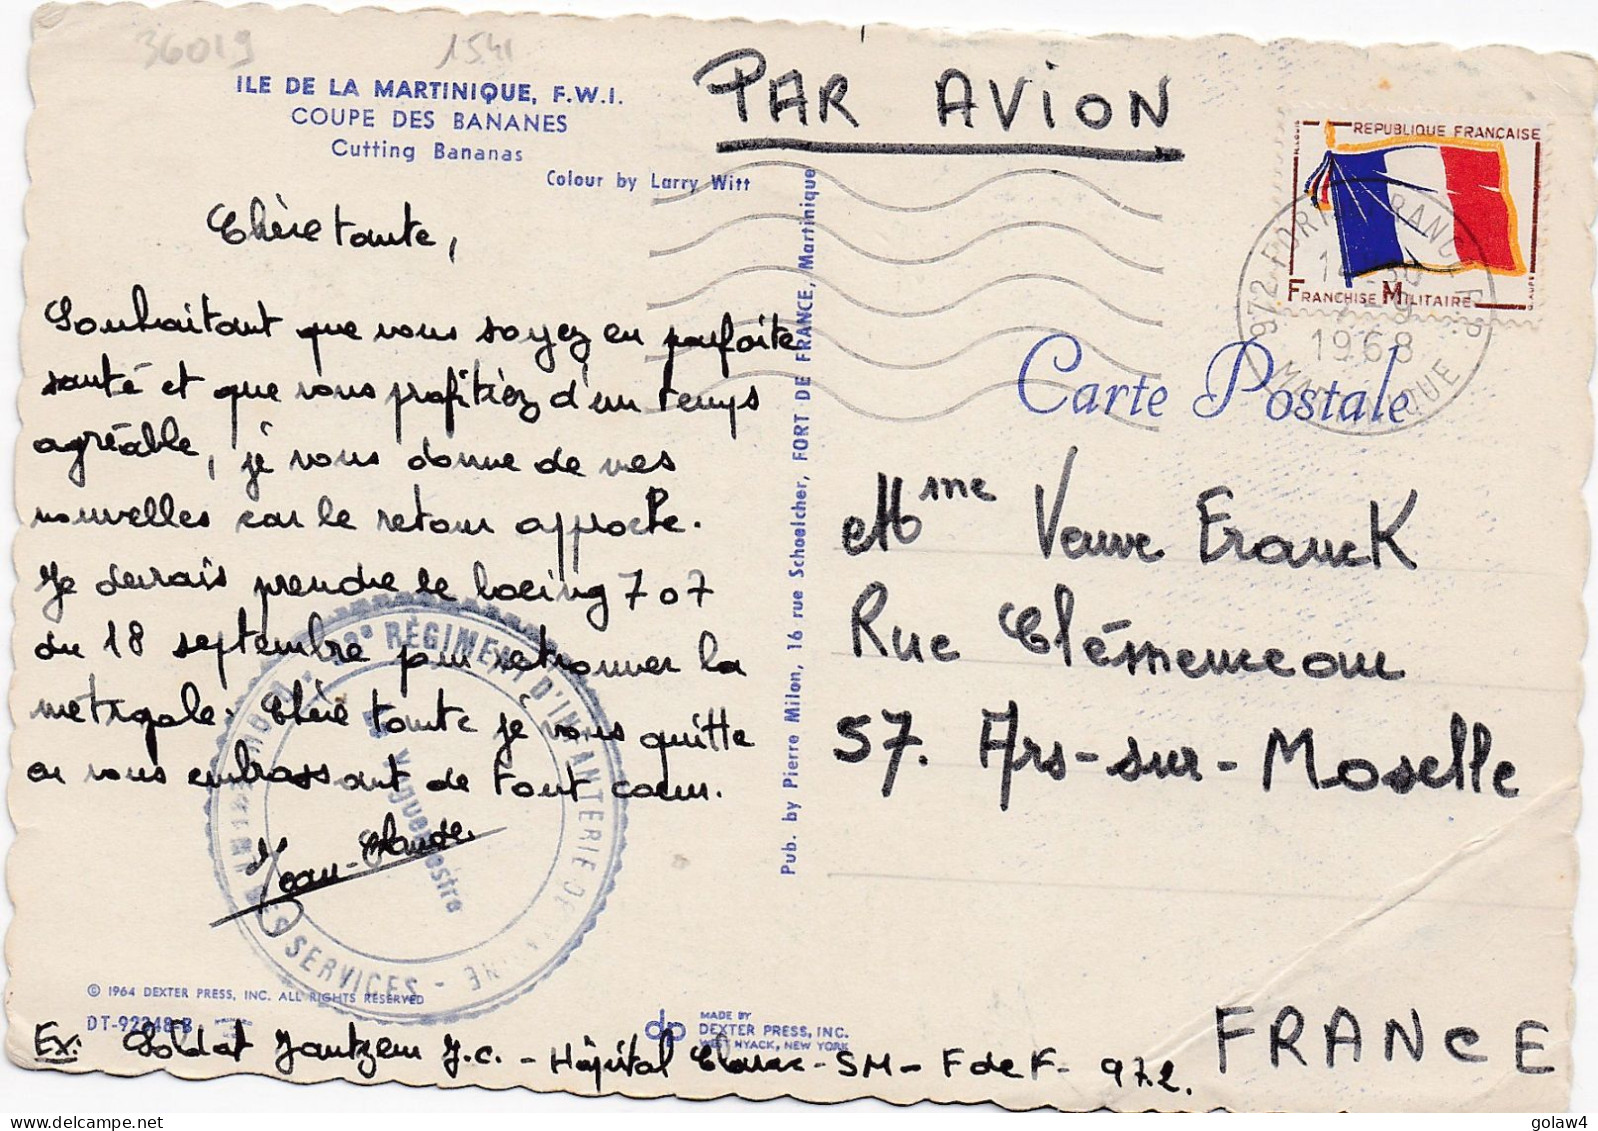 36019 1541
ILE DE LA MARTINIQUE, F.W.I.
COUPE DES BANANES
Cutting Bananas
Colour by Larry Witt
PAR AVION
REPUBLIQUE FRANÇAISE
FRANCHISE MILITAIRE
972 FORT DE FRANCE R.P.
1968
MARTINIQUE
Carte Postale
Chère tante,
Souhaitant que vous soyez en parfaite
santé et que vous profitiez d'un temps
agréable, je vous donne de mes
nouvelles car le retour approche.
Je devrais prendre le boeing 707
du 18 septembre pour retrouver la
métropole. Chère tante je vous quitte
en vous embrassant de tout coeur.
Jean-Claude.
RÉGIMENT D'INFANTERIE DE MARINE
SERVICES
Vaguemestre
Pub. by Pierre Milon, 16 rue Schoelcher, FORT DE FRANCE, Martinique
Mme Veuve Franck
Rue Clémenceau
57. Ars-sur-Moselle
FRANCE
© 1964 DEXTER PRESS, INC. ALL RIGHTS RESERVED
DT-92248-B
dp MADE BY
DEXTER PRESS, INC.
WEST NYACK, NEW YORK
Ex: Soldat Jantzem J.C. - Hôpital Clarac - SM - F de F - 972.
golaw4